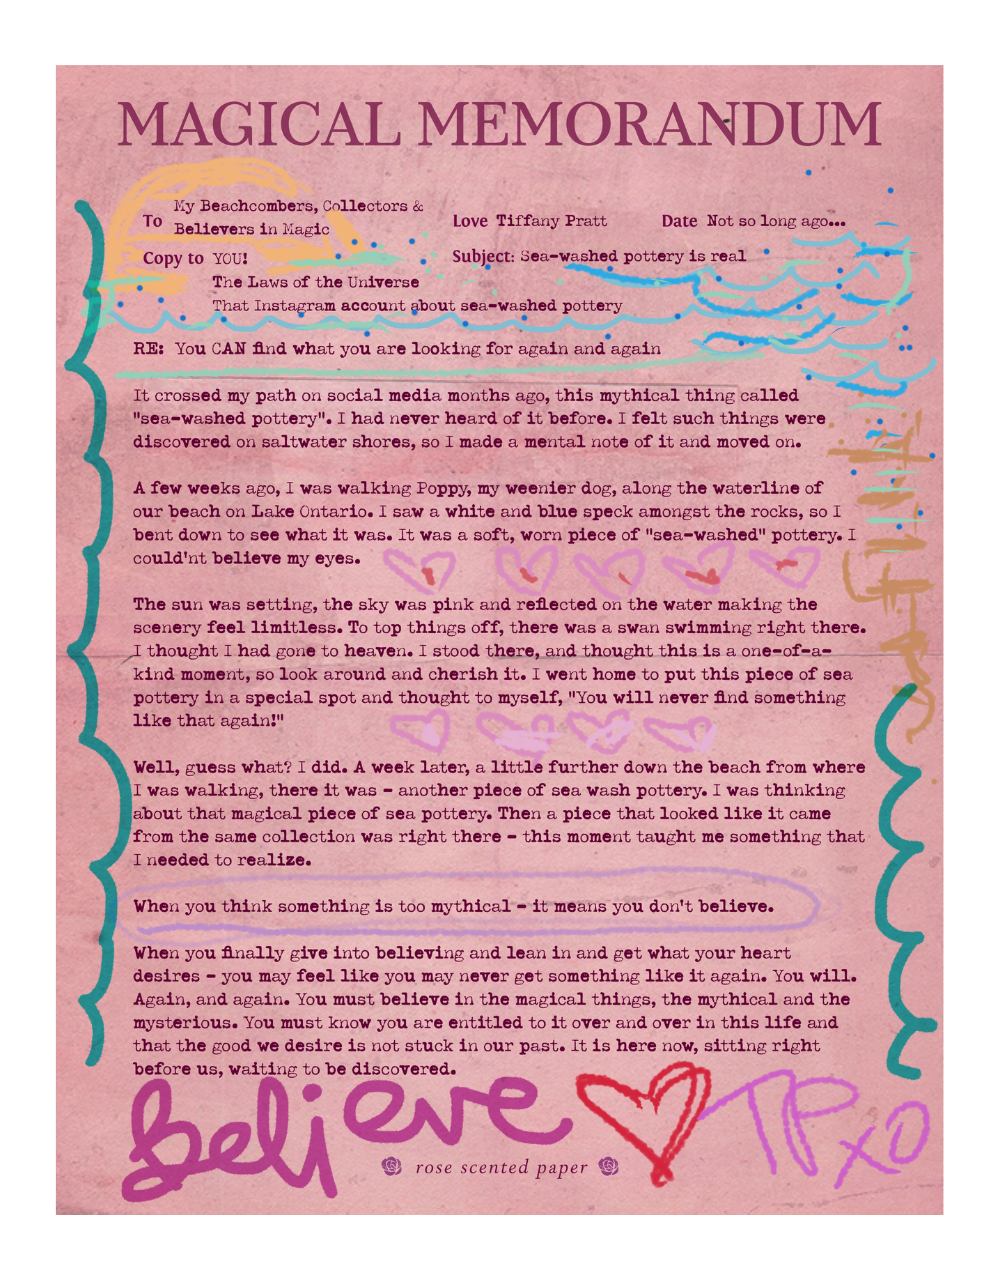 MAGICAL MEMORANDUM
To My Beachcombers, Collectors &
Believers in Magic
Love Tiffany Pratt
Date Not so long ago...
Copy to YOU!
Subject: Sea-washed pottery is real
The Laws of the Universe
That Instagram account about sea-washed pottery
RE: You CAN find what you are looking for again and again
It crossed my path on social media months ago, this mythical thing called
"sea-washed pottery". I had never heard of it before. I felt such things were
discovered on saltwater shores, so I made a mental note of it and moved on.
A few weeks ago, I was walking Poppy, my weenier dog, along the waterline of
our beach on Lake Ontario. I saw a white and blue speck amongst the rocks, so I
bent down to see what it was. It was a soft, worn piece of "sea-washed" pottery. I
could'nt believe my eyes.
The sun was setting, the sky was pink and reflected on the water making the
scenery feel limitless. To top things off, there was a swan swimming right there.
I thought I had gone to heaven. I stood there, and thought this is a one-of-a-
kind moment, so look around and cherish it. I went home to put this piece of sea
pottery in a special spot and thought to myself, "You will never find something
like that again!"
Well, guess what? I did. A week later, a little further down the beach from where
I was walking, there it was - another piece of sea wash pottery. I was thinking
about that magical piece of sea pottery. Then a piece that looked like it came
from the same collection was right there - this moment taught me something that
I needed to realize.
When you think something is too mythical - it means you don't believe.
When you finally give into believing and lean in and get what your heart
desires - you may feel like you may never get something like it again. You will.
Again, and again. You must believe in the magical things, the mythical and the
mysterious. You must know you are entitled to it over and over in this life and
that the good we desire is not stuck in our past. It is here now, sitting right
before us, waiting to be discovered.
Believe
TP xo
rose scented paper